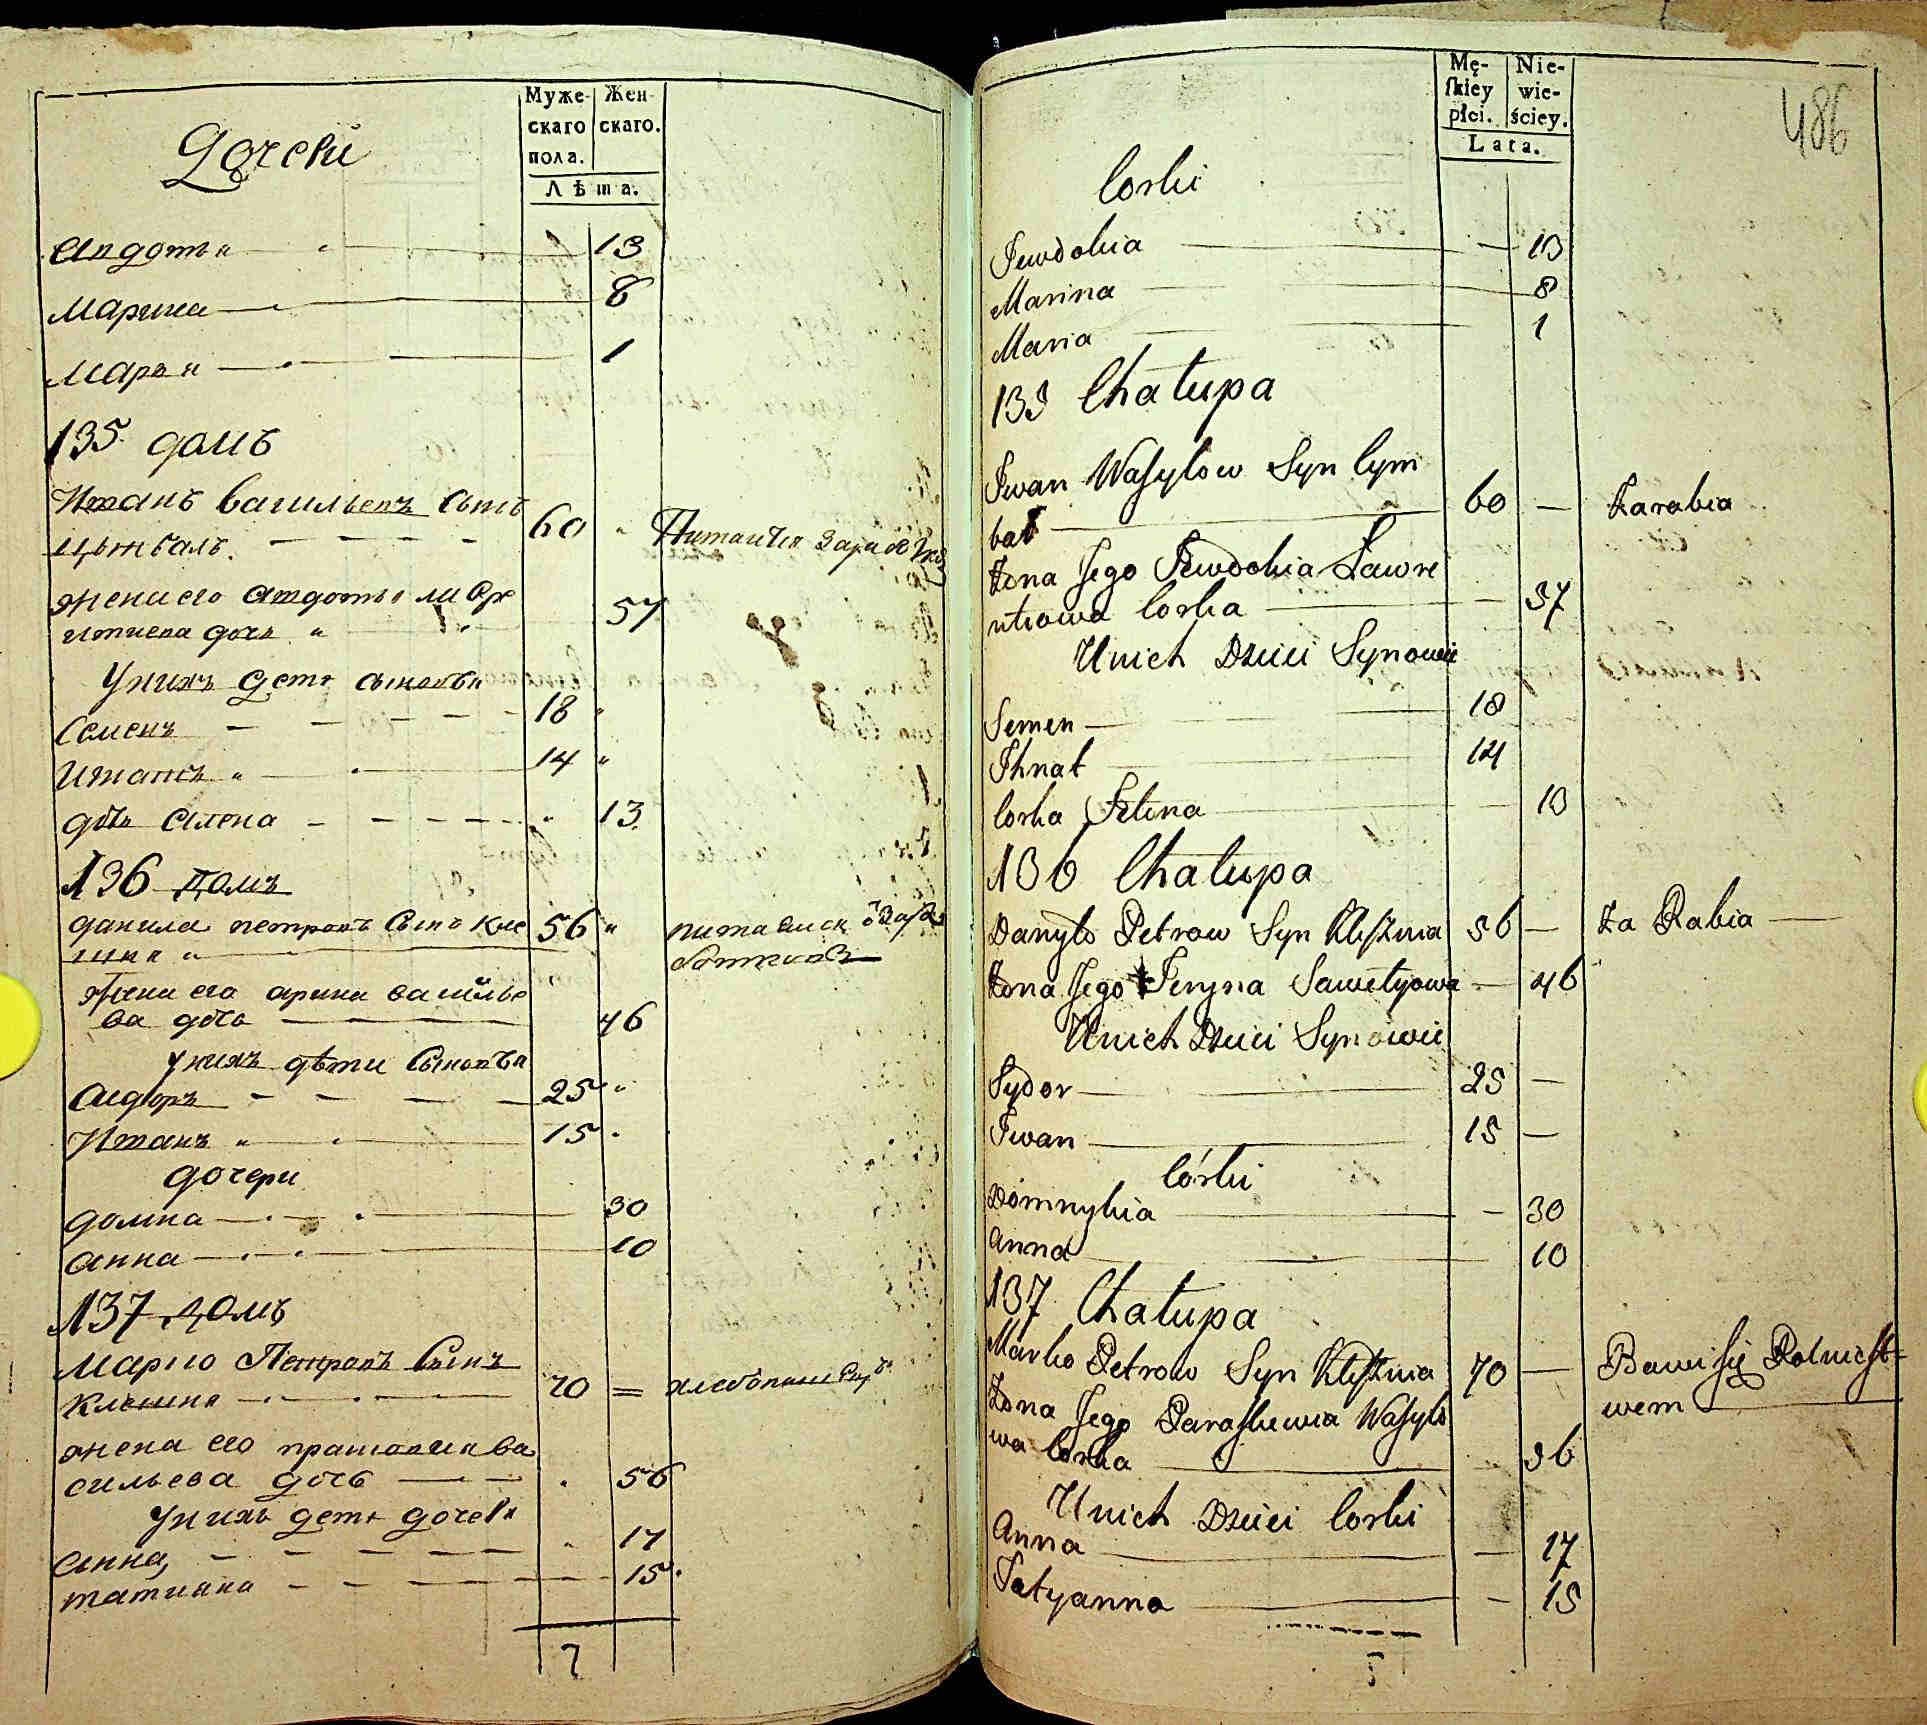 Муже-
скаго
пола.
Жен-
скаго.
Лѣта.
Дочеки
Авдотья 13
Марина 8
Марья 1
135 домъ
Иванъ Васильевъ сынъ 60
Цымбалъ
жена его Авдотья Лавре 57
нтиева дочь
У нихъ дети сыновья
Семенъ 18
Игнатъ 14
дочь Алена 13
136 Домъ
Данила Петровъ сынъ Кле 56
шня
жена его Арина Василье
ва дочь 46
У нихъ дѣти сыновья
Сидоръ 25
Иванъ 15
Дочери
Домна 30
Анна 10
137 Домъ
Марко Петровъ сынъ 70
Клешня
жена его Прасковия Ва
сильева дочь 56
У нихъ дети дочеки
Анна 17
Татияна 15
7
486
Mę-
skiey
płci.
Nie-
wie-
ściey.
Lata.
Corki
Jewdokia 13
Marina 8
Maria 1
135 Chałupa
Jwan Wasylow Syn Cym
bał 60 Zarabia
Żona Jego Jewdokia Ławre
ntiowa Corka 57
U nich Dzieci Synowie
Semen 18
Jhnat 14
Corka Jelena 13
136 Chałupa
Danyło Petrow Syn Klesznia 56 Za Rabia
Żona Jego Jeryna Sawetyowa 46
U nich Dzieci Synowie
Sydor 25
Jwan 15
Córki
Domnykia 30
Anna 10
137 Chałupa
Marko Petrow Syn Klesznia 70 Bawi się Rolniczt=
wem
Żona Jego Paraskiewia Wasyło
wa Corka 56
U nich Dzieci Corki
Anna 17
Tatyanna 15